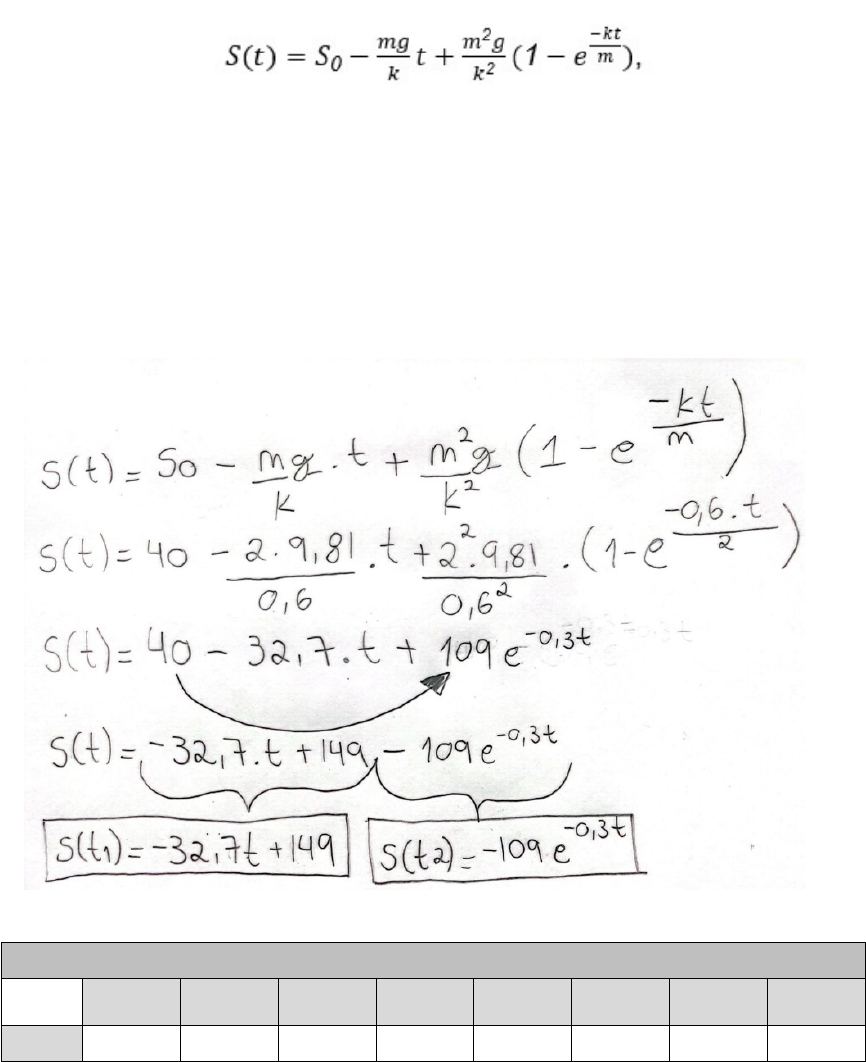 S(t) = S₀ − mg/k t + m²g/k² (1 − e^(−kt/m)),
S(t) = S0 − mg/k . t + m²g/k² (1 − e^(−kt/m))
S(t) = 40 − 2 . 9,81/0,6 . t + 2² . 9,81/0,6² . (1 − e^(−0,6 . t/2))
S(t) = 40 − 32,7 . t + 109 e^(−0,3t)
S(t) = −32,7 . t + 149 − 109 e^(−0,3t)
S(t1) = −32,7t + 149 S(t2) = −109 . e^(−0,3t)